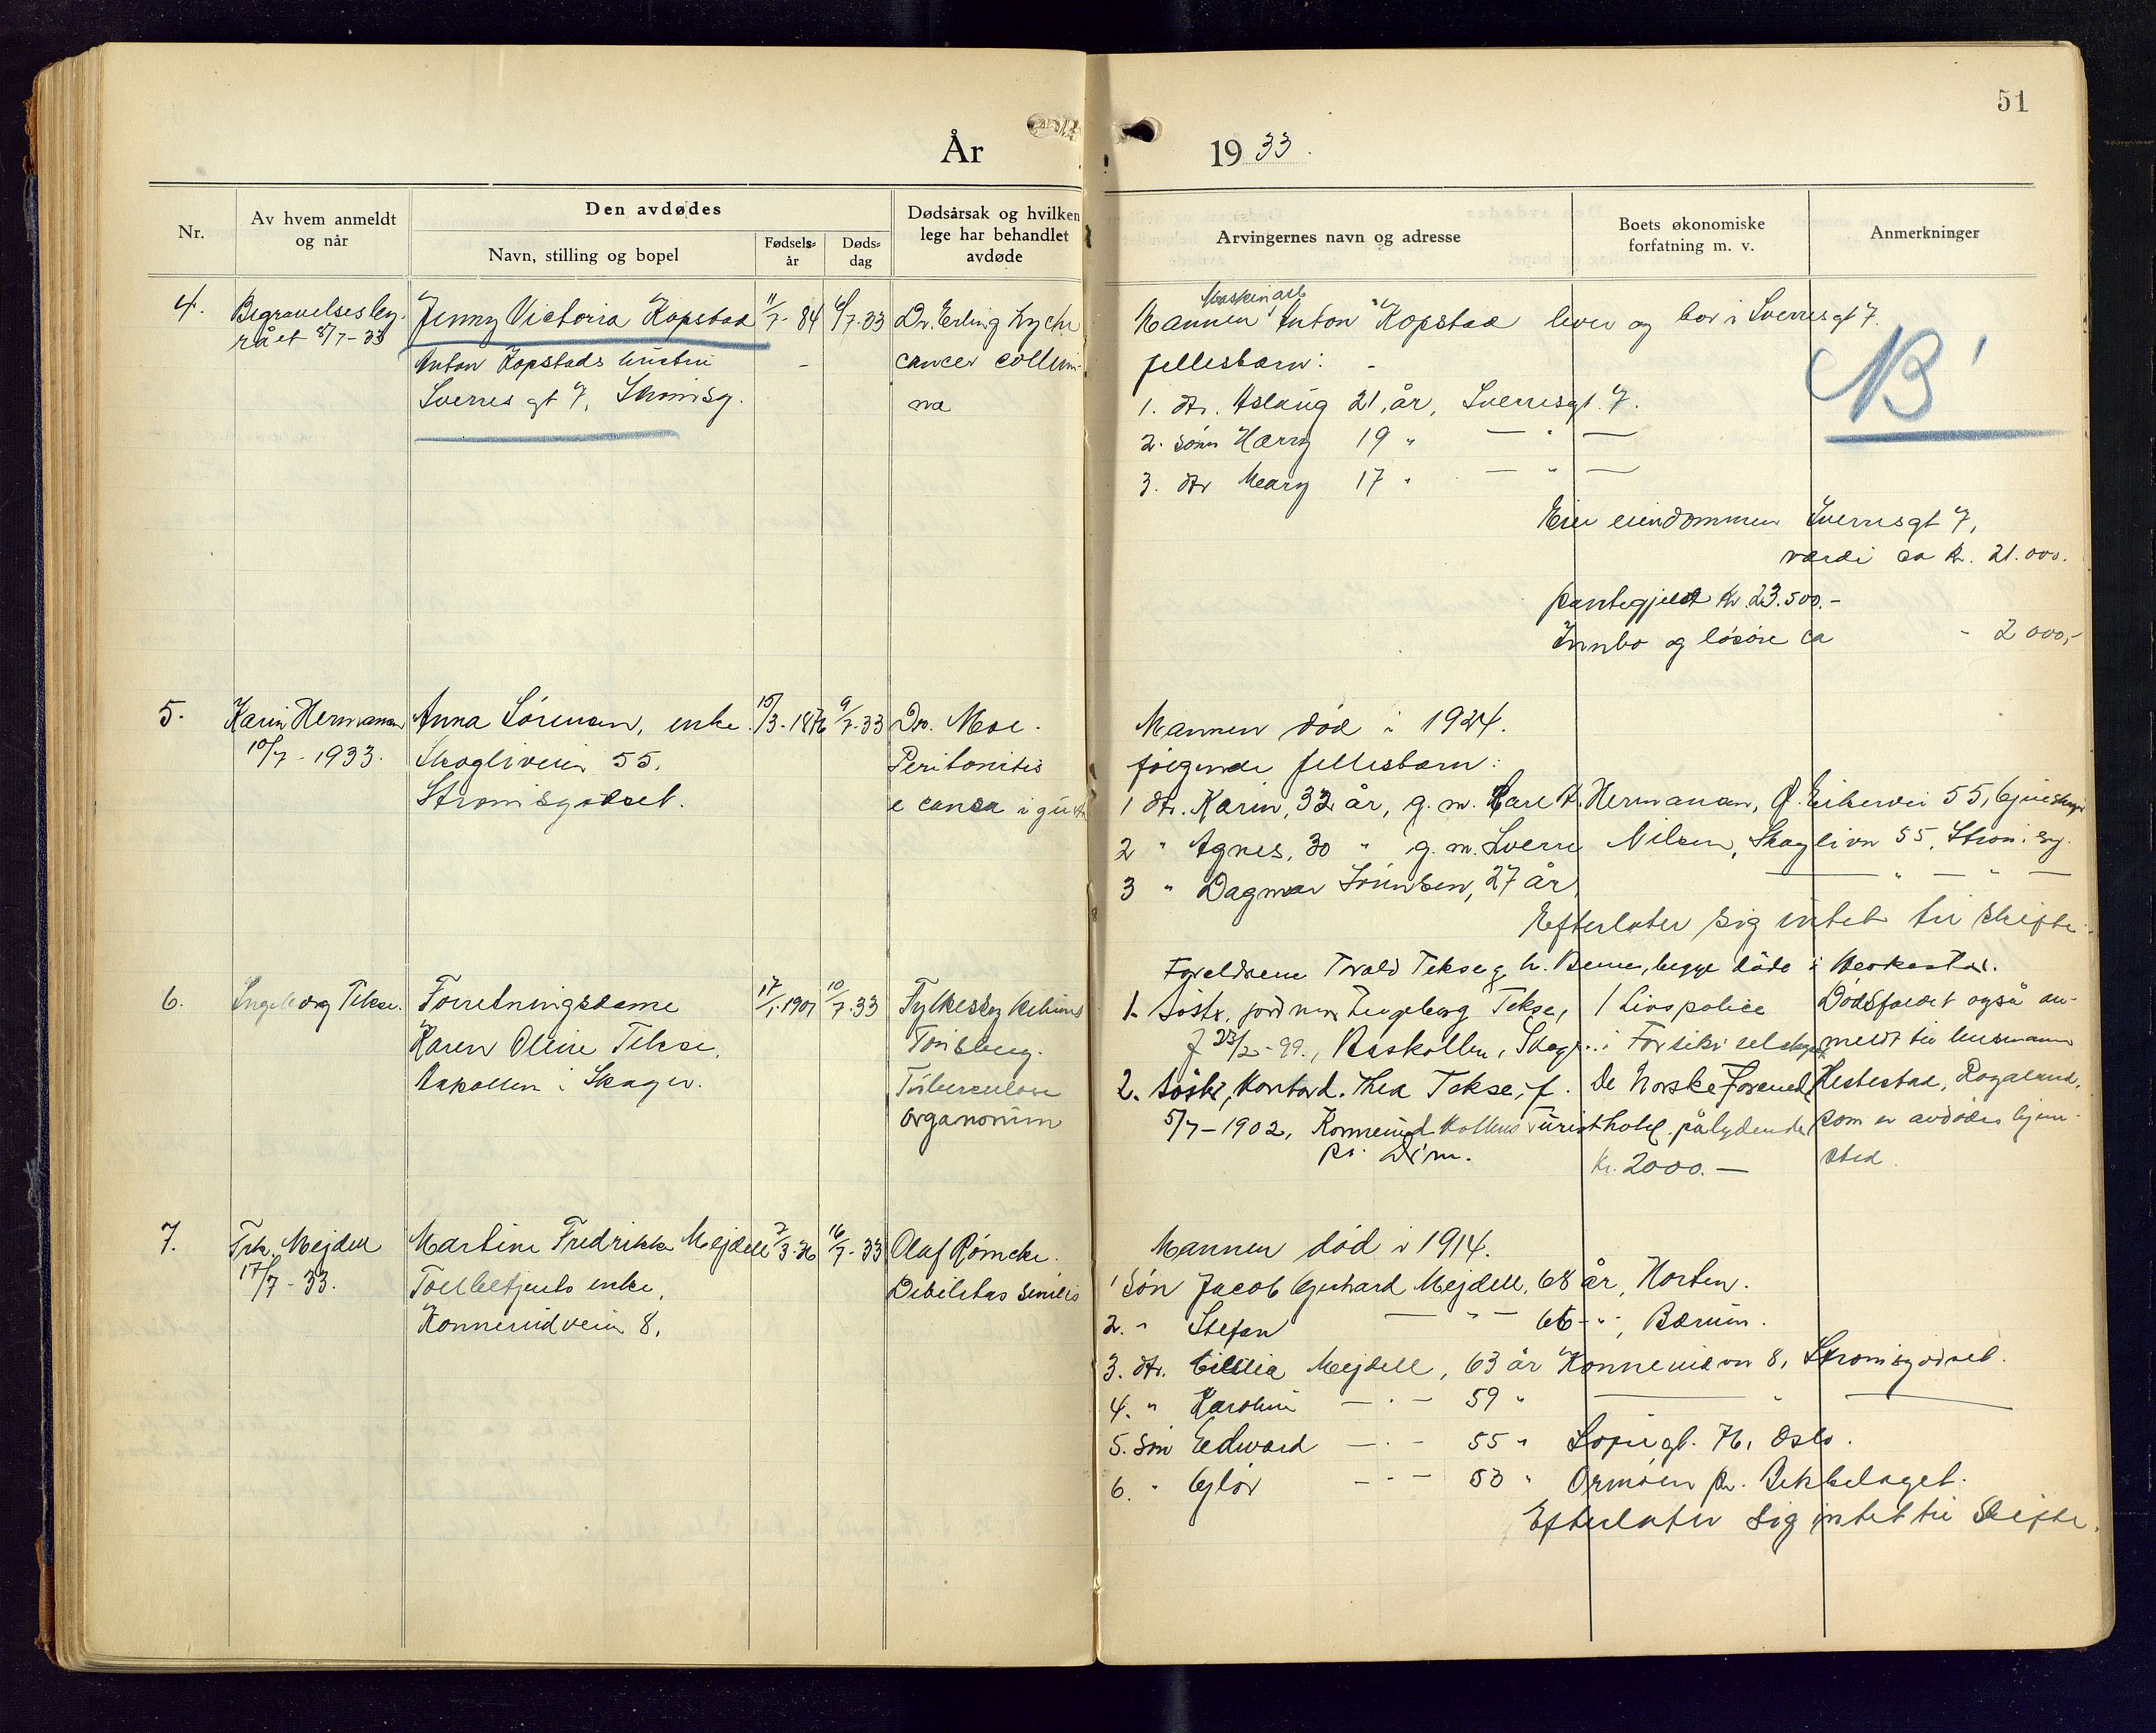 51
År 1933.
Nr.
Av hvem anmeldt og når
Den avdødes
Navn, stilling og bopel
Fødsels-år
Døds-dag
Dødsårsak og hvilken lege har behandlet avdøde
Arvingernes navn og adresse
Boets økonomiske forfatning m. v.
Anmerkninger
4.
Begravelsesby-
rået 8/7-33
Jenny Victoria Kopstad
Anton Kopstads hustru
Sverres gt 7, Strømsg.
11/7-84
6/7-33
Dr. Erling Lyche
cancer
Maskinarb
Mannen Anton Kopstad lever og bor i Sverresgt 7.
fellesbarn:
1. dtr. Aslaug 21 år, Sverresgt. 7.
2. sønn Harry 19 " — " —
3. dtr Mary 17 " — " —
B
Eier eiendommen Sverresgt 7,
verdi ca kr. 21.000.
pantegjeld kr. 23.500.-
Innbo og løsøre ca - 2000,-
5.
Karin Hermansen
10/7-1933.
Anna Sørensen, enke
Skogliveien 55,
Strømsgodset.
15/3-1876
9/7-33
Dr. Moe.
Peritonitis
Mannen død i 1924.
følgende fellesbarn:
1 dtr. Karin, 32 år, g. m. Hermansen, Ø. Eikervei 55,
2 " Agnes, 30 " g. m. Sverre Nilsen, Skoglivn 55, Strømsg.
3 " Dagmar Sørensen, 27 år, — " — " —
Efterlater sig intet til skifte.
6.
Ingeborg Tekse.
Forretningsdame
Karen Oline Tekse,
i Skoger.
17/1-1901
10/7-33
Tønsberg.
Tuberculose
organorum
Foreldrene Torald Tekse og h. begge døde i
1. Søster, jordmor Ingeborg Tekse,
f 23/2-99., Skoger.
2. søster, Kontord. Thea Tekse, f.
5/7-1902, Konnerudkollens Turisthotel
pr. Drm.
1 Livspolice
i Forsikr. selskapet
De Norske Forened
pålydende
kr. 2000.—
Dødsfallet også an-
meldt til lensmann
Hestestad, Rogaland,
som er avdødes hjem-
sted.
7.
Frk. Mejdell
17/7-33.
Martine Fredrikke Mejdell
Tollbetjents enke,
Konnerudveien 8,
7/3-36
16/7-33
Olaf Rømcke.
Debilitas senilis
Mannen død i 1914.
1 Søn Jacob Gerhard Mejdell, 68 år, Horten.
2. " Stefan — " — 66 " , Bærum.
3. dtr. Cicilia Mejdell, 63 år Konnerudvn 8, Strømsgodset.
4. " Karoline — " — 59 " — " —
5. søn Edvard — " — 55 " Sofiegt. 76, Oslo.
6. " Glør — " — 53 " Ormøen pr. Bekkelaget.
Efterlater sig intet til skifte.